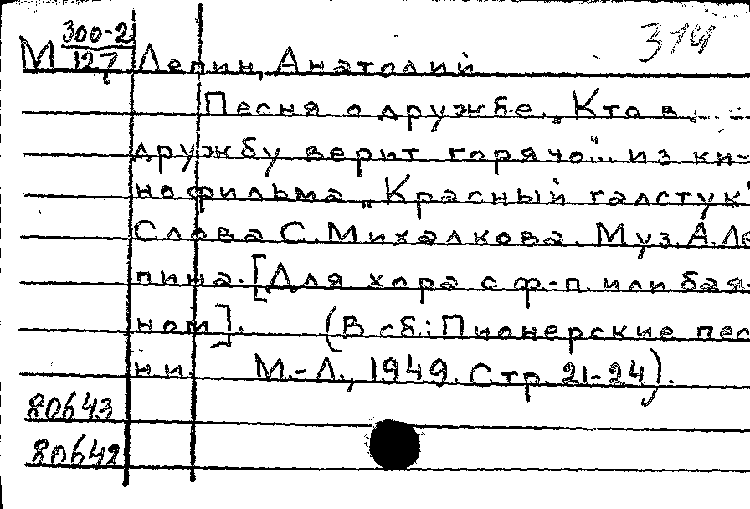 314
М 300-2/127 Лепин, Анатолий
Песня о дружбе. „Кто в
дружбу верит горячо"... из ки-
нофильма „Красный галстук"
Слова С. Михалкова. Муз. А. Ле
пина. [Для хора с ф-п. или бая-
ном]. (В сб.: Пионерские пес
ни. М.-Л., 1949. Стр. 21-24).
80643
80642